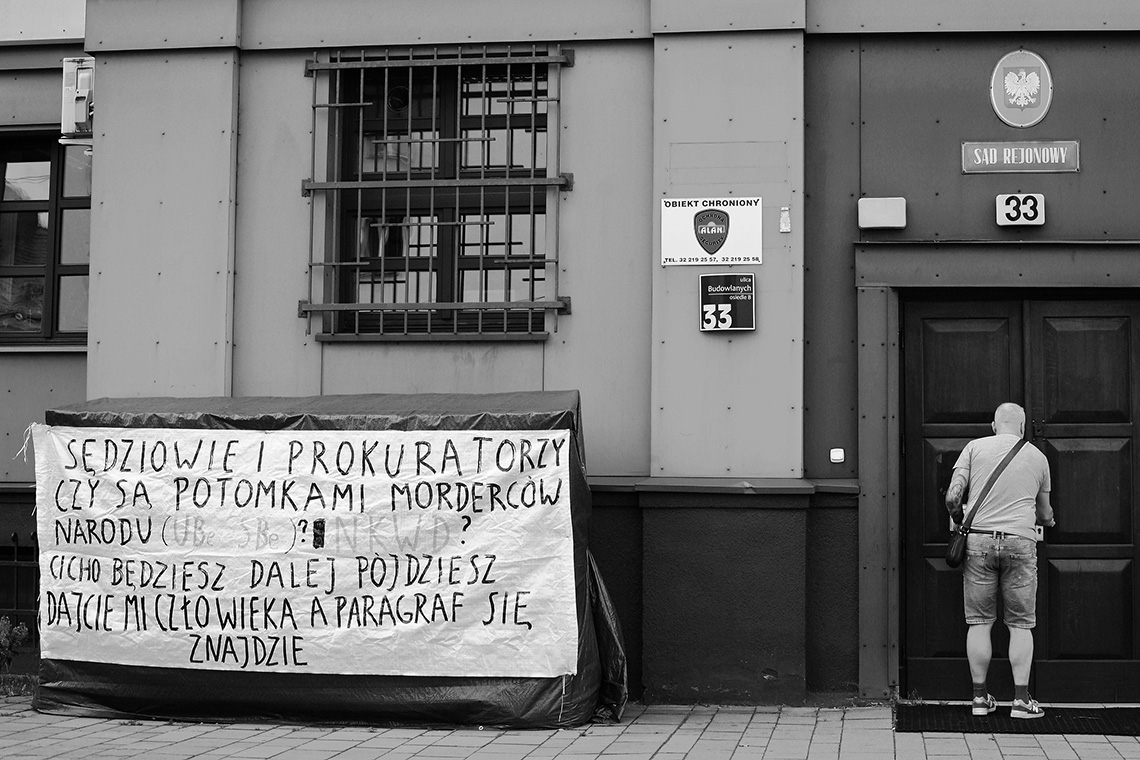 SĘDZIOWIE I PROKURATORZY
CZY SĄ POTOMKAMI MORDERCÓW
NARODU (UBe SBe)? NKWD?
CICHO BĘDZIESZ DALEJ PÓJDZIESZ
DAJCIE MI CZŁOWIEKA A PARAGRAF SIĘ
ZNAJDZIE
OBIEKT CHRONIONY
OCHRONA
ALAN
SECURITY
TEL. 32 219 25 57, 32 219 25 58
ulica
Budowlanych
osiedle B
33
SĄD REJONOWY
33